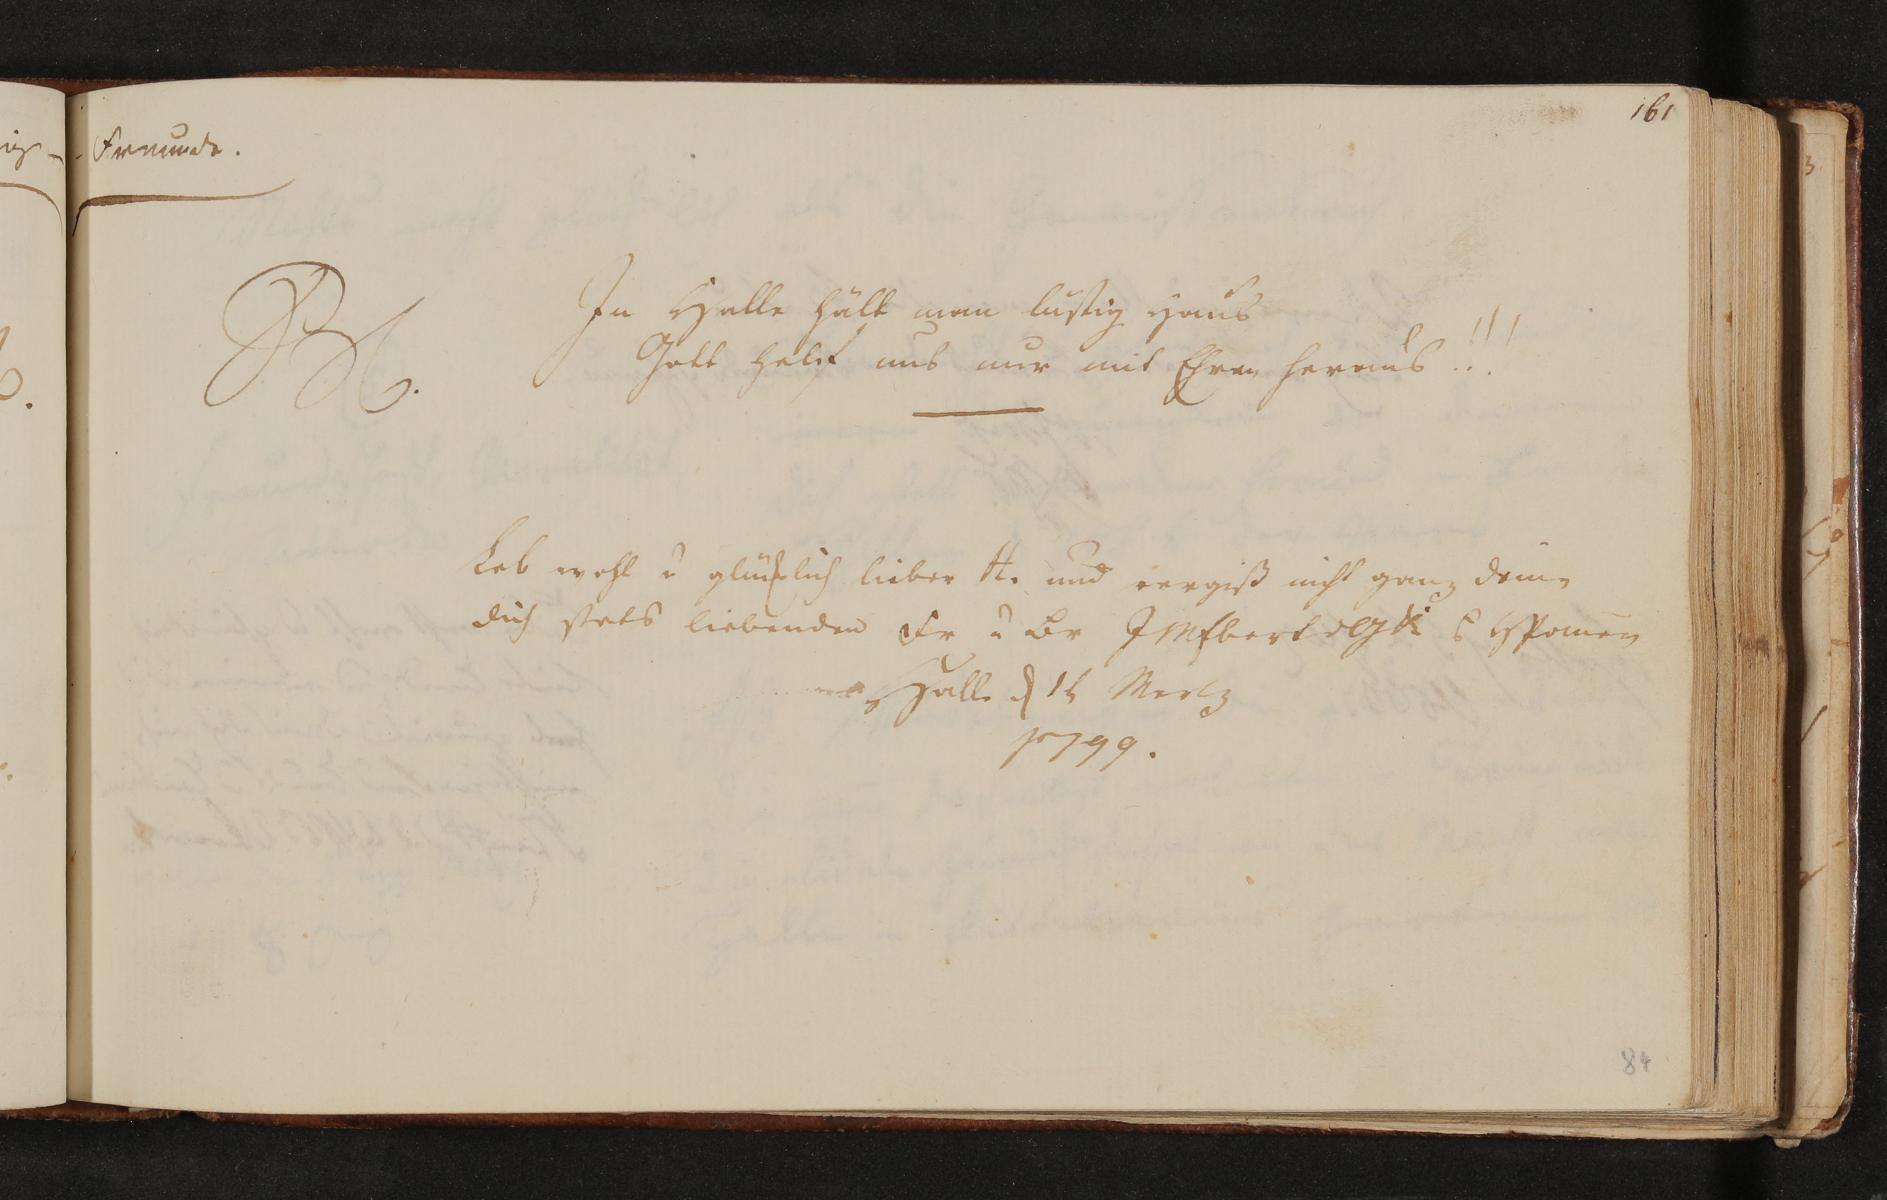 161
Freunde.
In Halle hält man lustig Haus
Gott helf uns nur mit Ehren heraus!!!
Leb wohl u glücklich lieber H. und vergiß nicht ganz deinen
dich stets liebenden Fr u Br
Halle d 16 Mertz
1799.
84